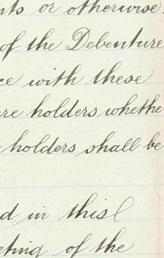 nts or otherwise.
of the Debenture
ce with these
re holders whethe
holders shall be
d in this
eting of the